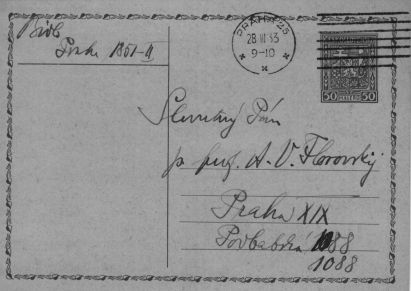 Praha 1851-II
PRAHA 25
28 III 33
9-10
50 50
Slovutný Pán
p. prof. A. V. Florovskij
Praha XIX
Podbabská 1088
1088